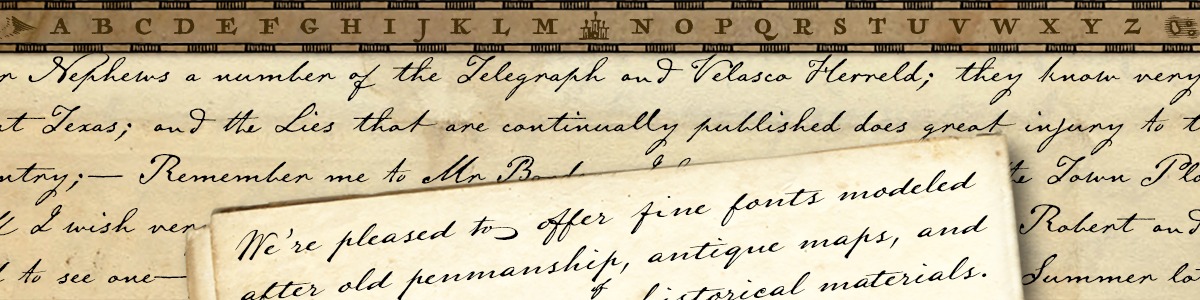 A B C D E F G H I J K L M N O P Q R S T U V W X Y Z
r Nephews a number of the Telegraph and Velasco Herreld; they know very
at Texas; and the Lies that are continually published does great injury to
ntry;— Remember me to Mr the Town
I wish Robert and
to see one— Summer
We're pleased to offer fine fonts modeled
after old penmanship, antique maps, and
historical materials.